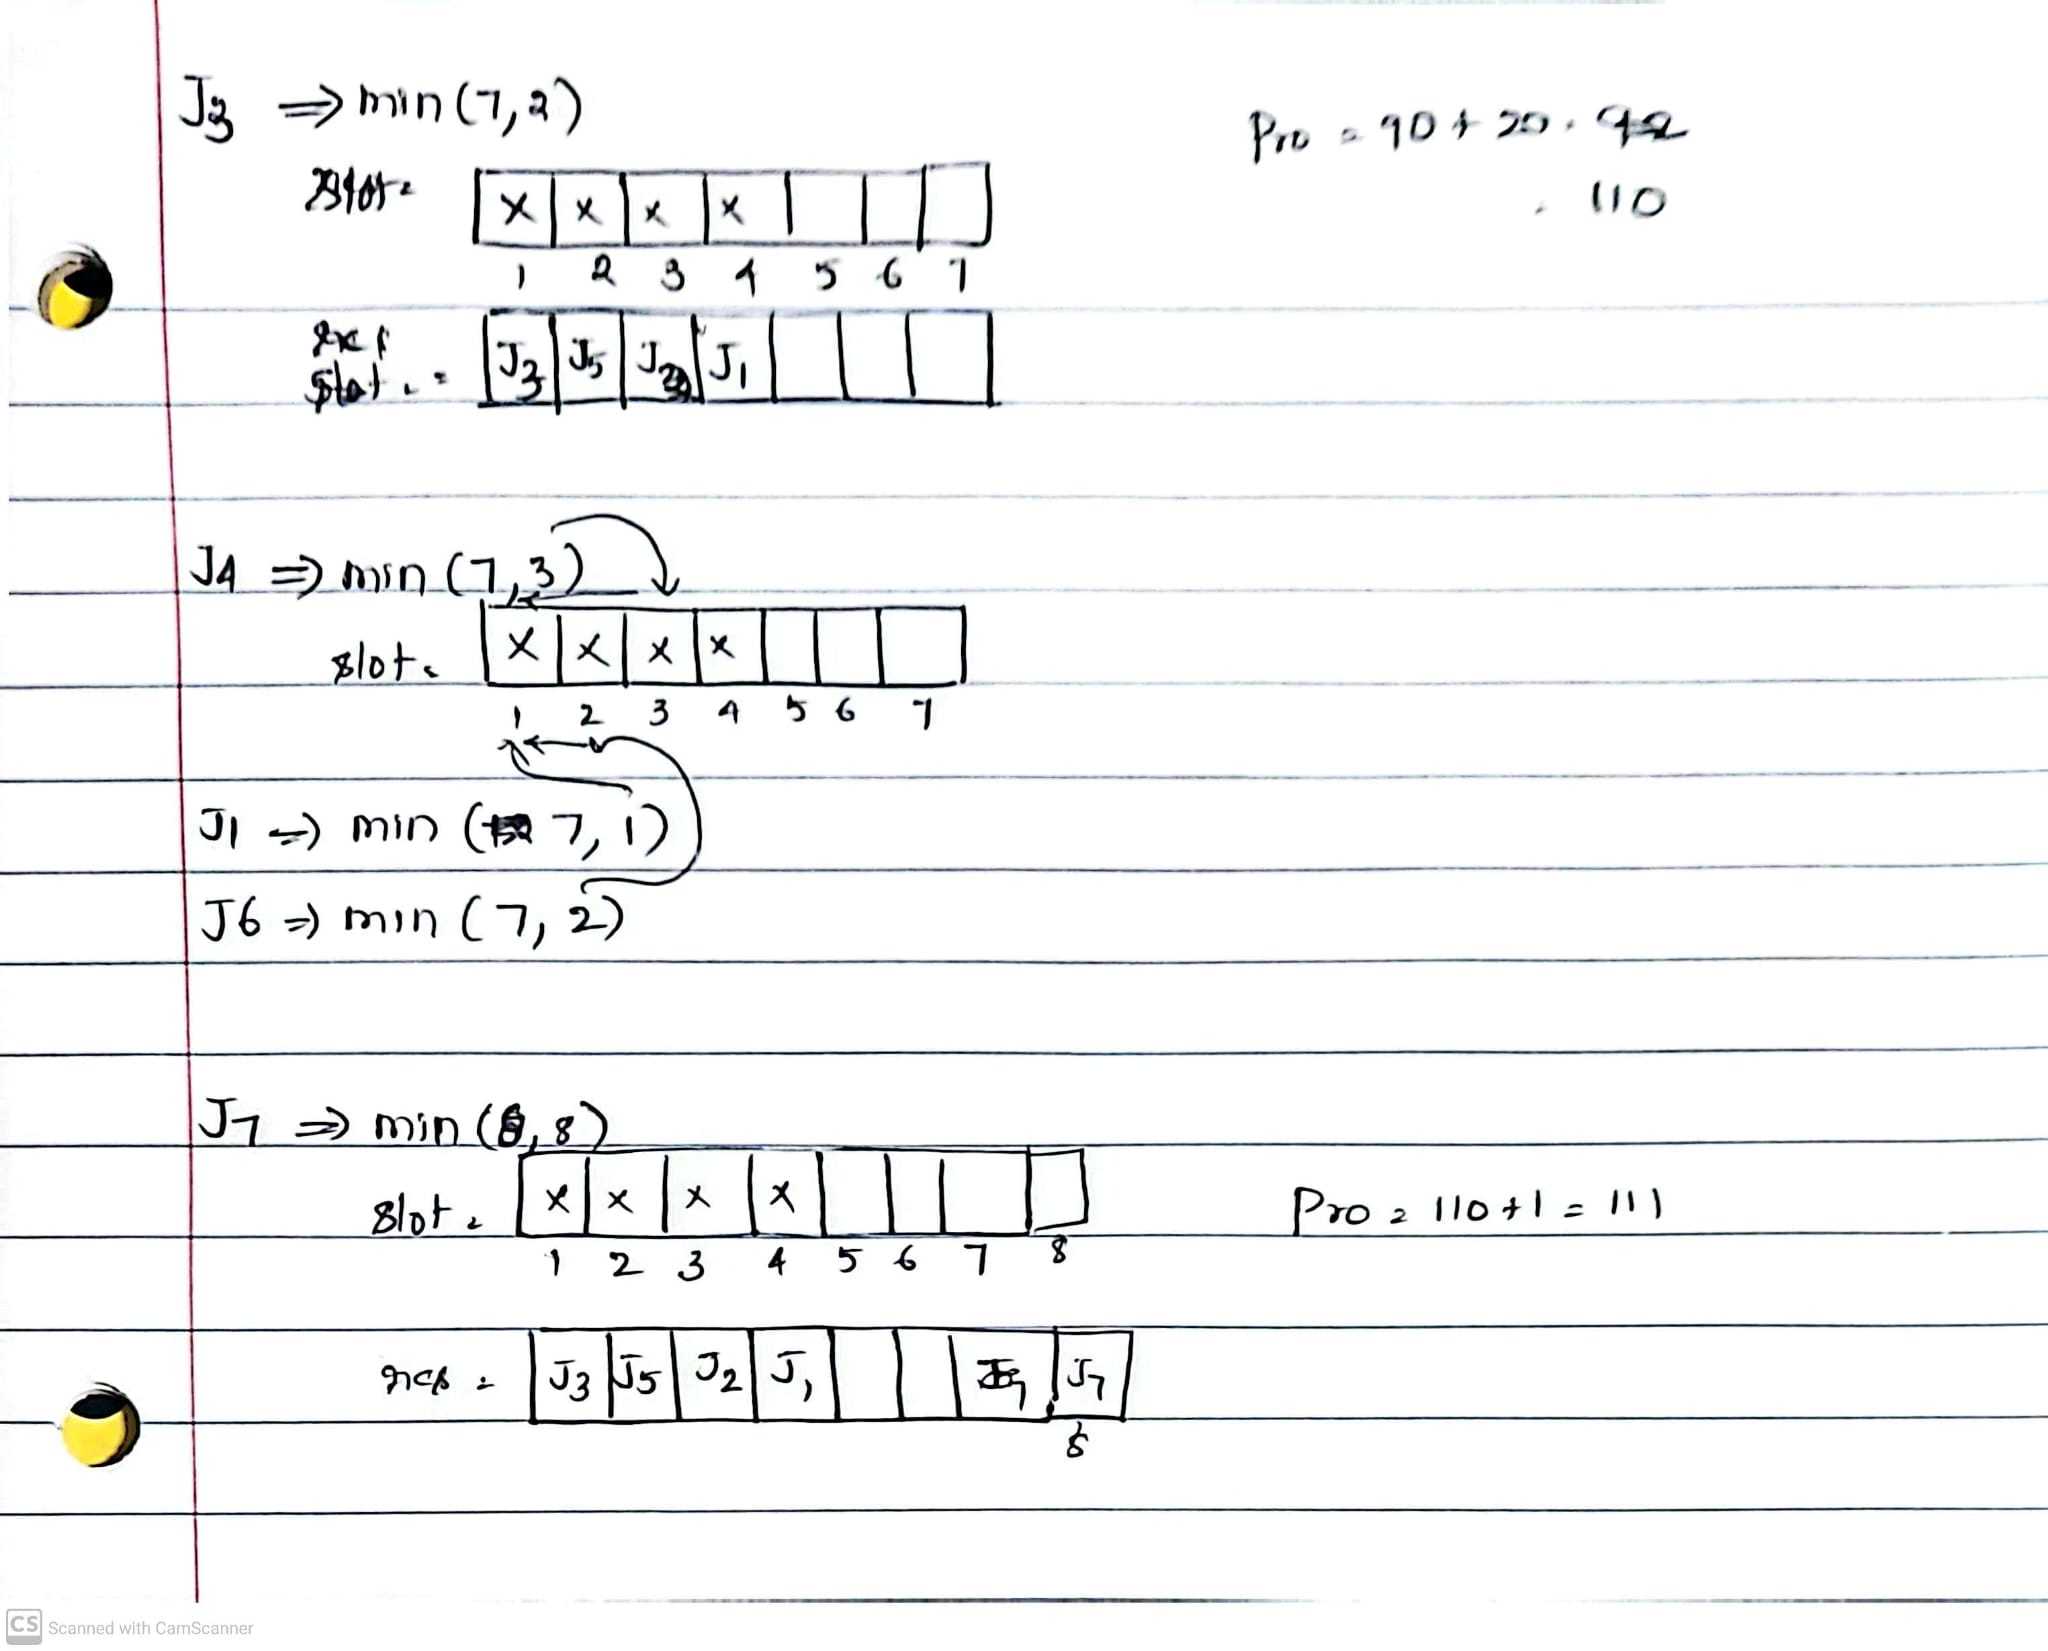 J3 ⇒ min (7, 2)
Pro = 90 + 20 .
= 110
slot =
x x x x
1 2 3 4 5 6 7
slot =
J3 J5 J2 J1
J4 ⇒ min (7, 3)
slot =
x x x x
1 2 3 4 5 6 7
J1 ⇒ min (7, 1)
J6 ⇒ min (7, 2)
J7 ⇒ min (8, 8)
slot =
x x x x
Pro = 110 + 1 = 111
1 2 3 4 5 6 7 8
res =
J3 J5 J2 J1 J7
8
CS Scanned with CamScanner